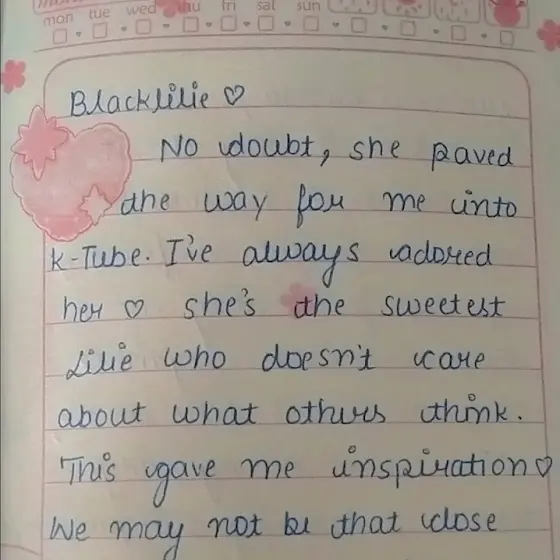 mon tue wed thu fri sat sun
Blacklilie ♡
No doubt, she paved
the way for me into
K-Tube. I've always adored
her ♡ she's the sweetest
Lilie who doesn't care
about what others think.
This gave me inspiration♡
We may not be that close